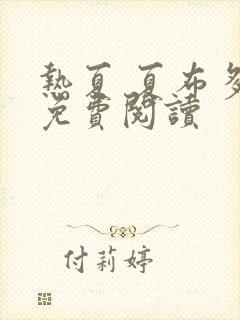 熱夏 夏布多
免費閱讀
付莉婷